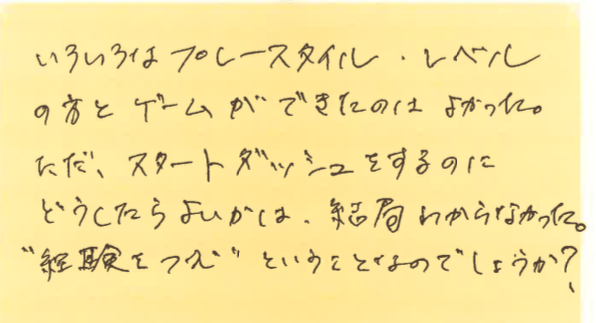 いろいろはプレースタイル・レベル
の方とゲームができたのはよかった。
ただ、スタートダッシュをするのに
どうしたらよいかは、結局わからなかった。
"経験をつむ"ということなのでしょうか?